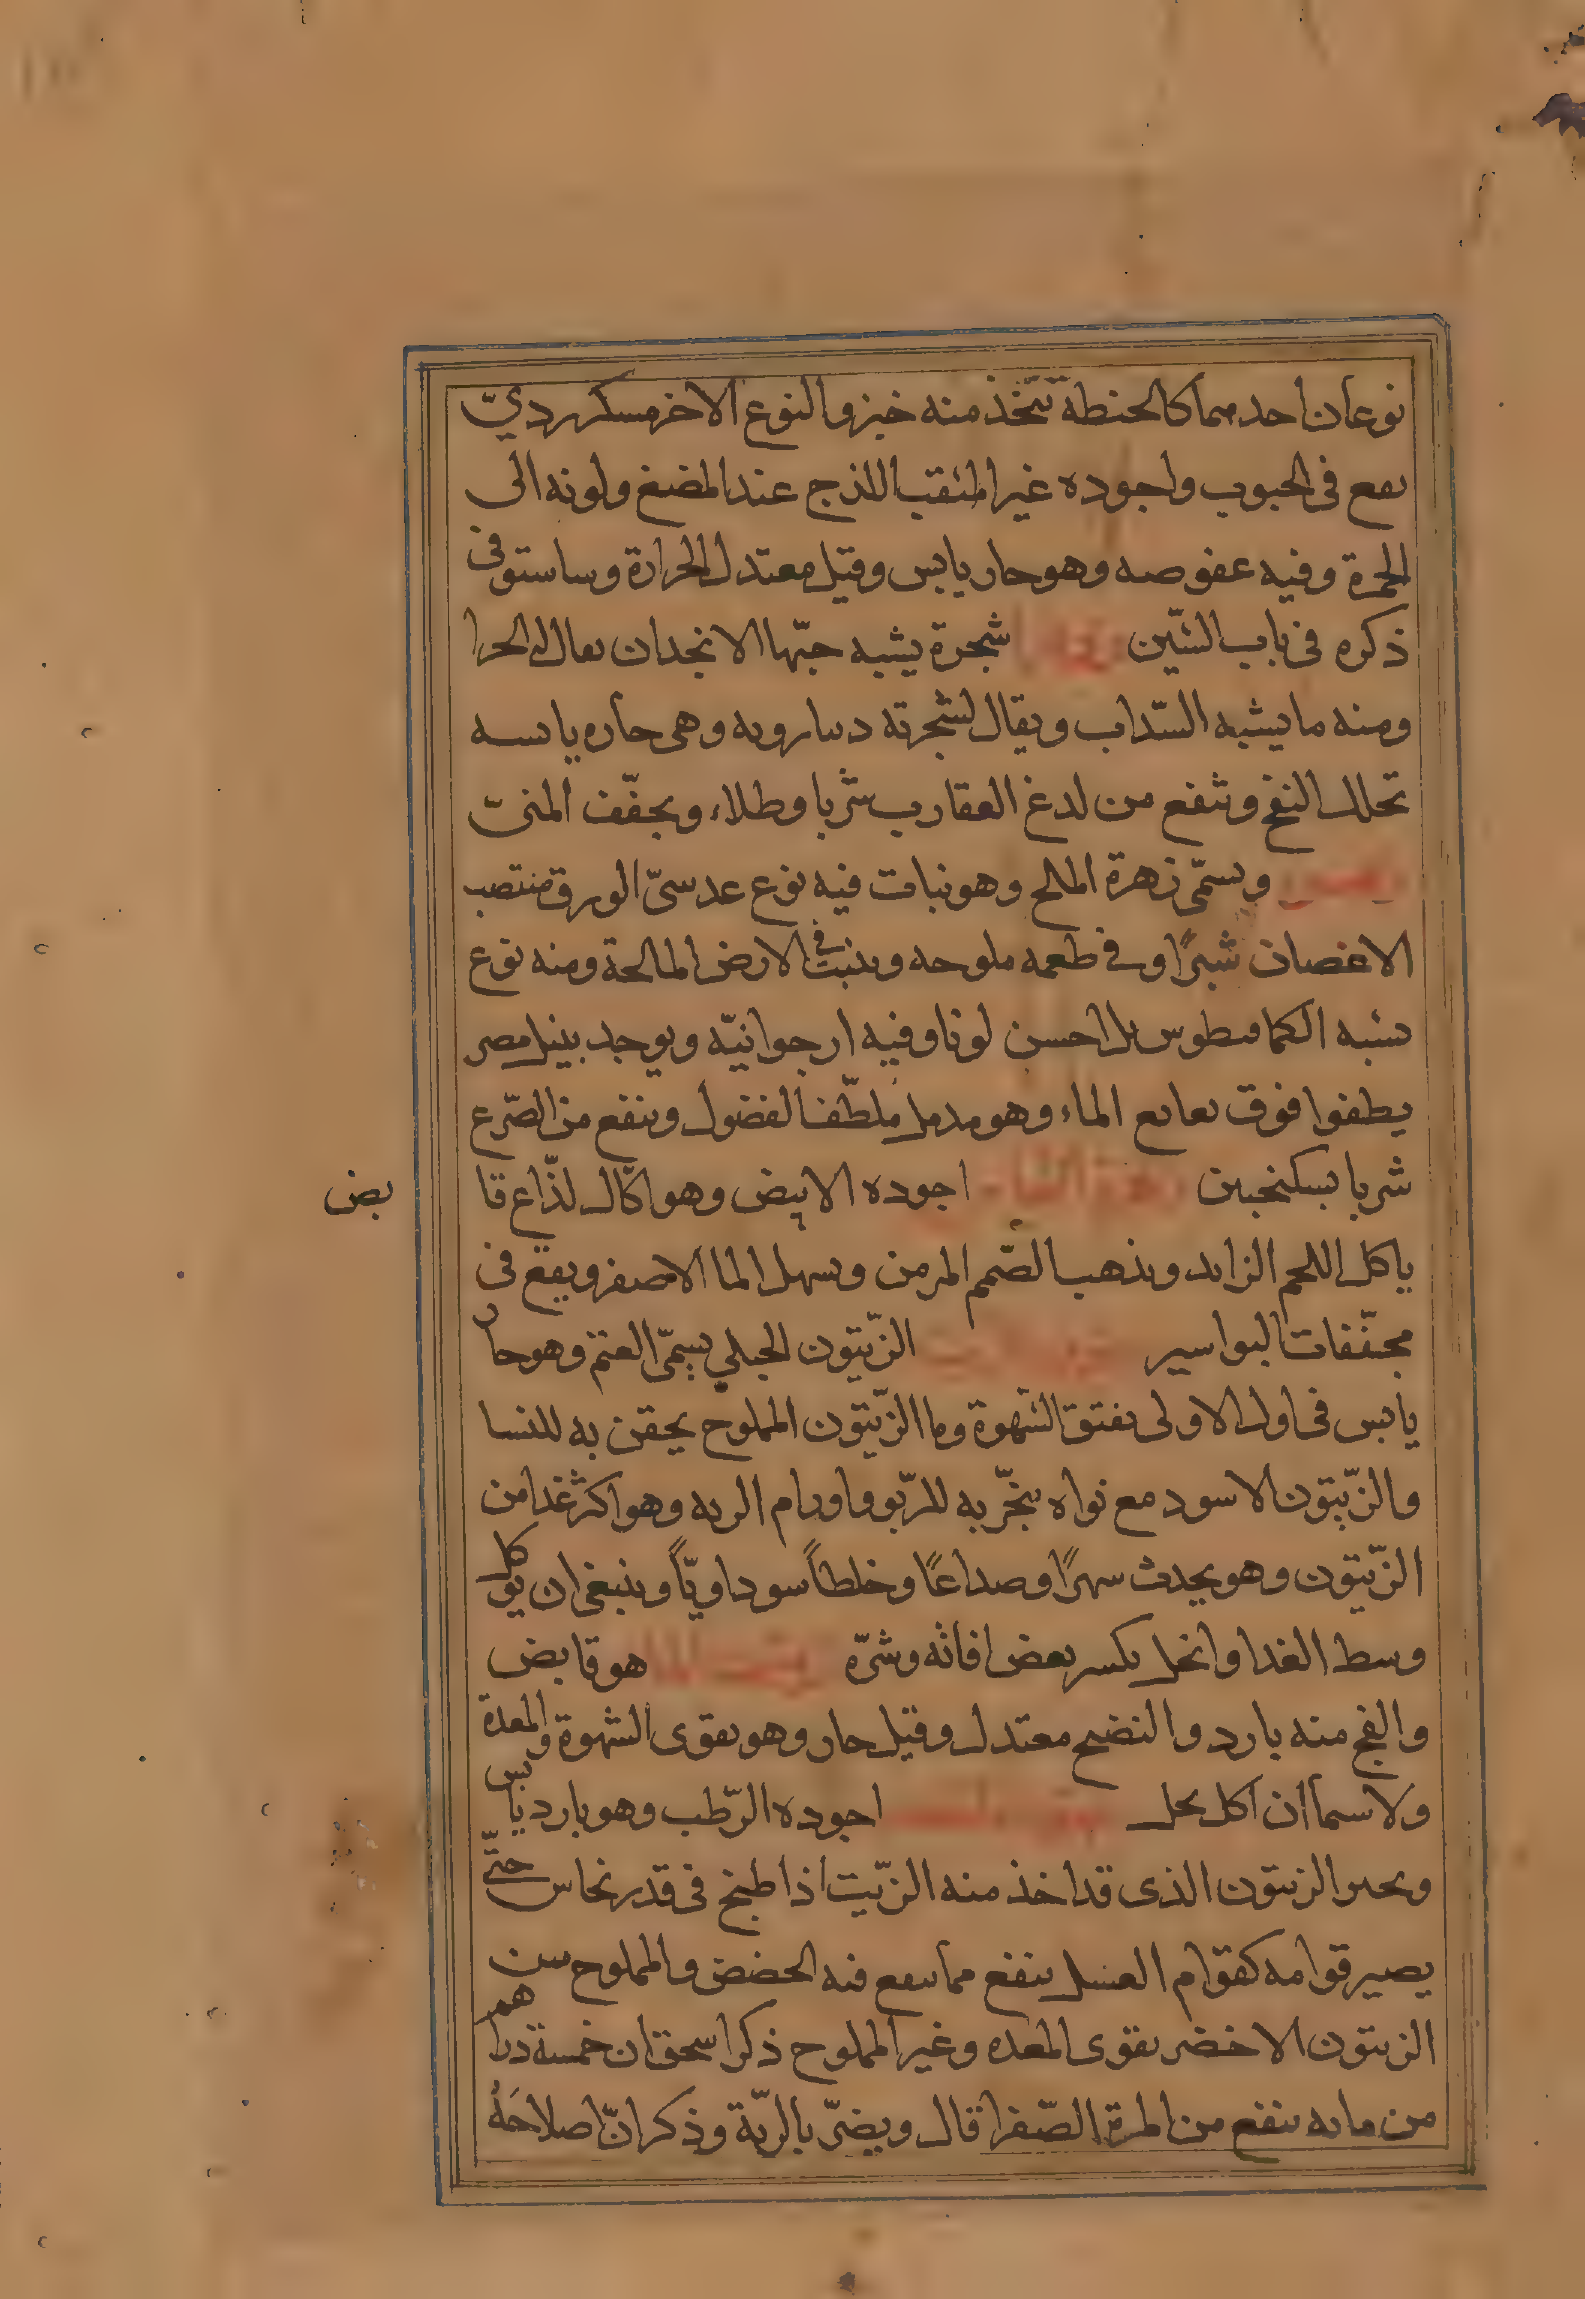 نوعان احدهما كالحنطة تتّخذ منه خبز والنوع الاخر مسكر رديّ
يقع فى الحبوب واجوده غير المثقب اللذج عند المضغ ولونه الى
الحمرة وفيه عفوصه وهو حار يابس وقيل معتدل الحرارة وساستوفى
ذكره فى باب الشّين شجرة يشبه حبّها الانجدان يقال له الحرا
ومنه ما يشبه السّداب ويقال لشجرته دينارويه وهى حاره يابسه
تحلل النفخ وتنفع من لدغ العقارب شربا وطلاء ويجفّف المنىّ
ويسمّى زهرة الملح وهو نبات فيه نوع عدسىّ الورق منتصب
الاغصان شبرًا وفى طعمه ملوحه وينبت فى الارض المالحة ومنه نوع
يشبه الكمافيطوس بل احسن لونا وفيه ارجوانيّه ويوجد بنيل مصر
يطفوا فوق نقايع الماء وهو مدمل ملطّف الفضول وينفع من الصّرع
شربا بسكنجبين اجوده الابيض وهو اكّال لذّاع قا
بض
ياكل اللحم الزايد ويذهب الصّمم المزمن ويسهل الما الاصفر ويقع فى
مجفّفات البواسير الزّيتون الجبلي يسمّى العتم وهو حار
يابس فى اول الاولى يفتق الشهوة وما الزّيتون المملوح يحقن به للنسا
والزّيتون الاسود مع نواه يبخّر به للرّبو واورام الريه وهو اكثر غدا من
الزّيتون وهو يحدث سهرًا وصداعًا وخلطاً سوداويّاً وينبغى ان يوكل
وسط الغدا والخل يكسر بعض افاته وشرّه هو قابض
والفج منه بارد والنضيج معتدل وقيل حار وهو يقوى الشهوة والمعدة
ولا سيما ان اكل بخل اجوده الرّطب وهو بارد يابس
وعكر الزيتون الذى قد اخذ منه الزّيت اذا طبخ فى قدر نحاس حتّى
يصير قوامه كقوام العسل ينفع مما ينفع فيه الحضض والمملوح من
الزيتون الاخضر يقوى المعده وغير المملوح ذكر اسحق ان خمسة دراهم
من مايه ينفع من المرة الصّفرا قال ويضرّ بالريّة وذكر انّ اصلاحَهُ